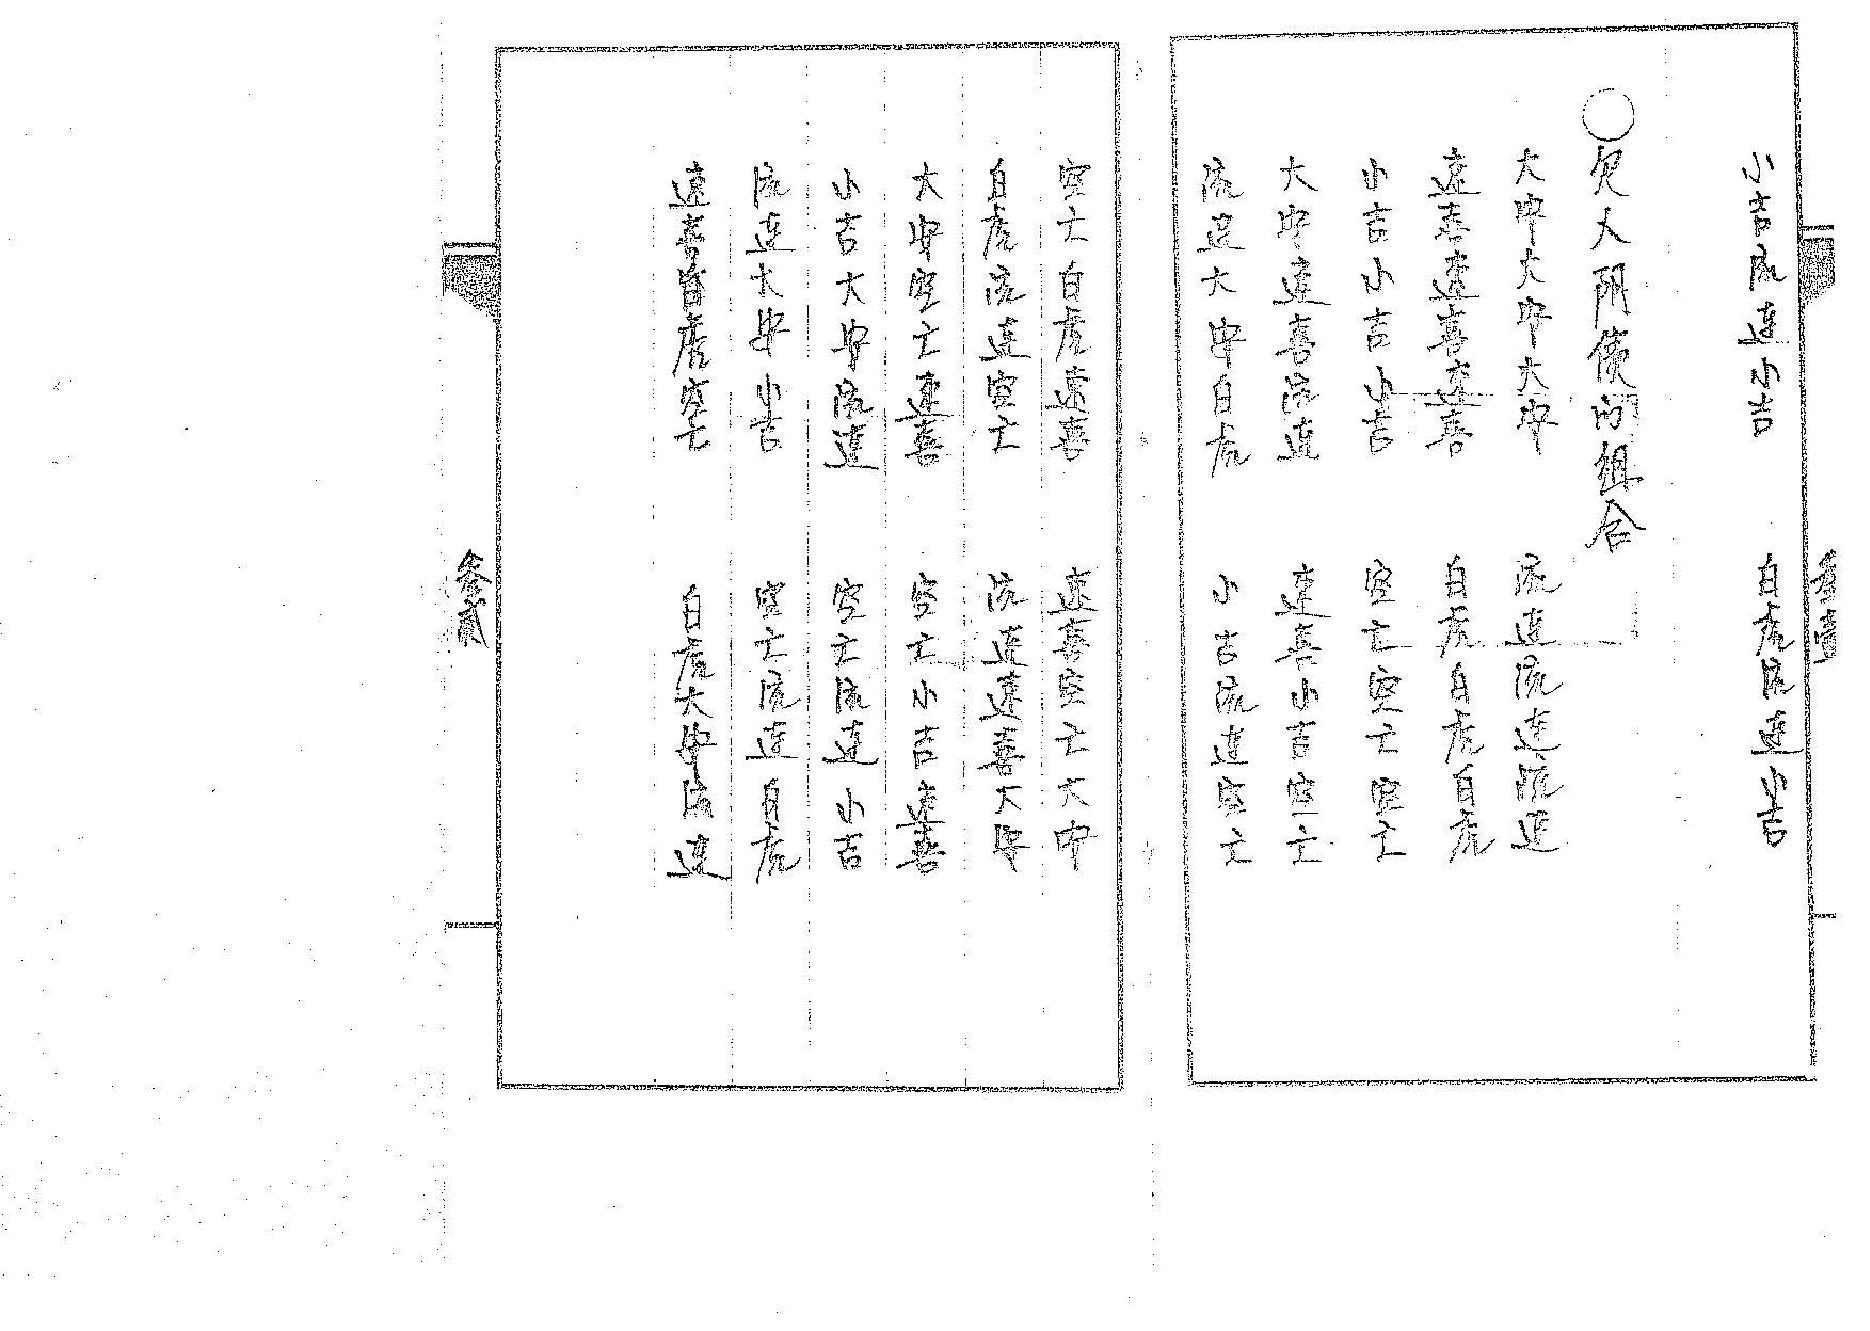 小吉流连小吉 白虎流连小吉
欠人阴债的组合
大安大安大安 流连流连流连
速喜速喜速喜 白虎白虎白虎
小吉小吉小吉 空亡空亡空亡
大安速喜流连 速喜小吉空亡
流连大安白虎 小吉流连空亡
叁壹
空亡白虎速喜 速喜空亡大安
白虎流连空亡 流连速喜大安
大安空亡速喜 空亡小吉速喜
小吉大安流连 空亡流连小吉
流连大安小吉 空亡流连白虎
速喜白虎空亡 白虎大安流连
叁贰